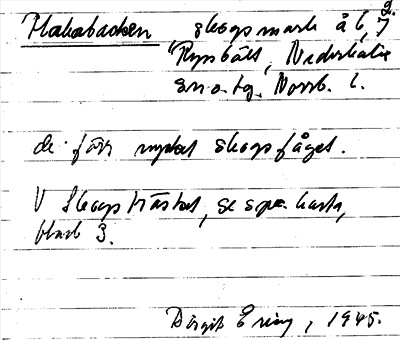 Makabacken, skogsmark å 6, 7
"Rysbält, Nederkalix
sn o. tg. Norrb. l.
de förr mycket skogsfågel.
V Skogsträsket, se spec. karta,
blad 3.
Birgit Ering, 1945.